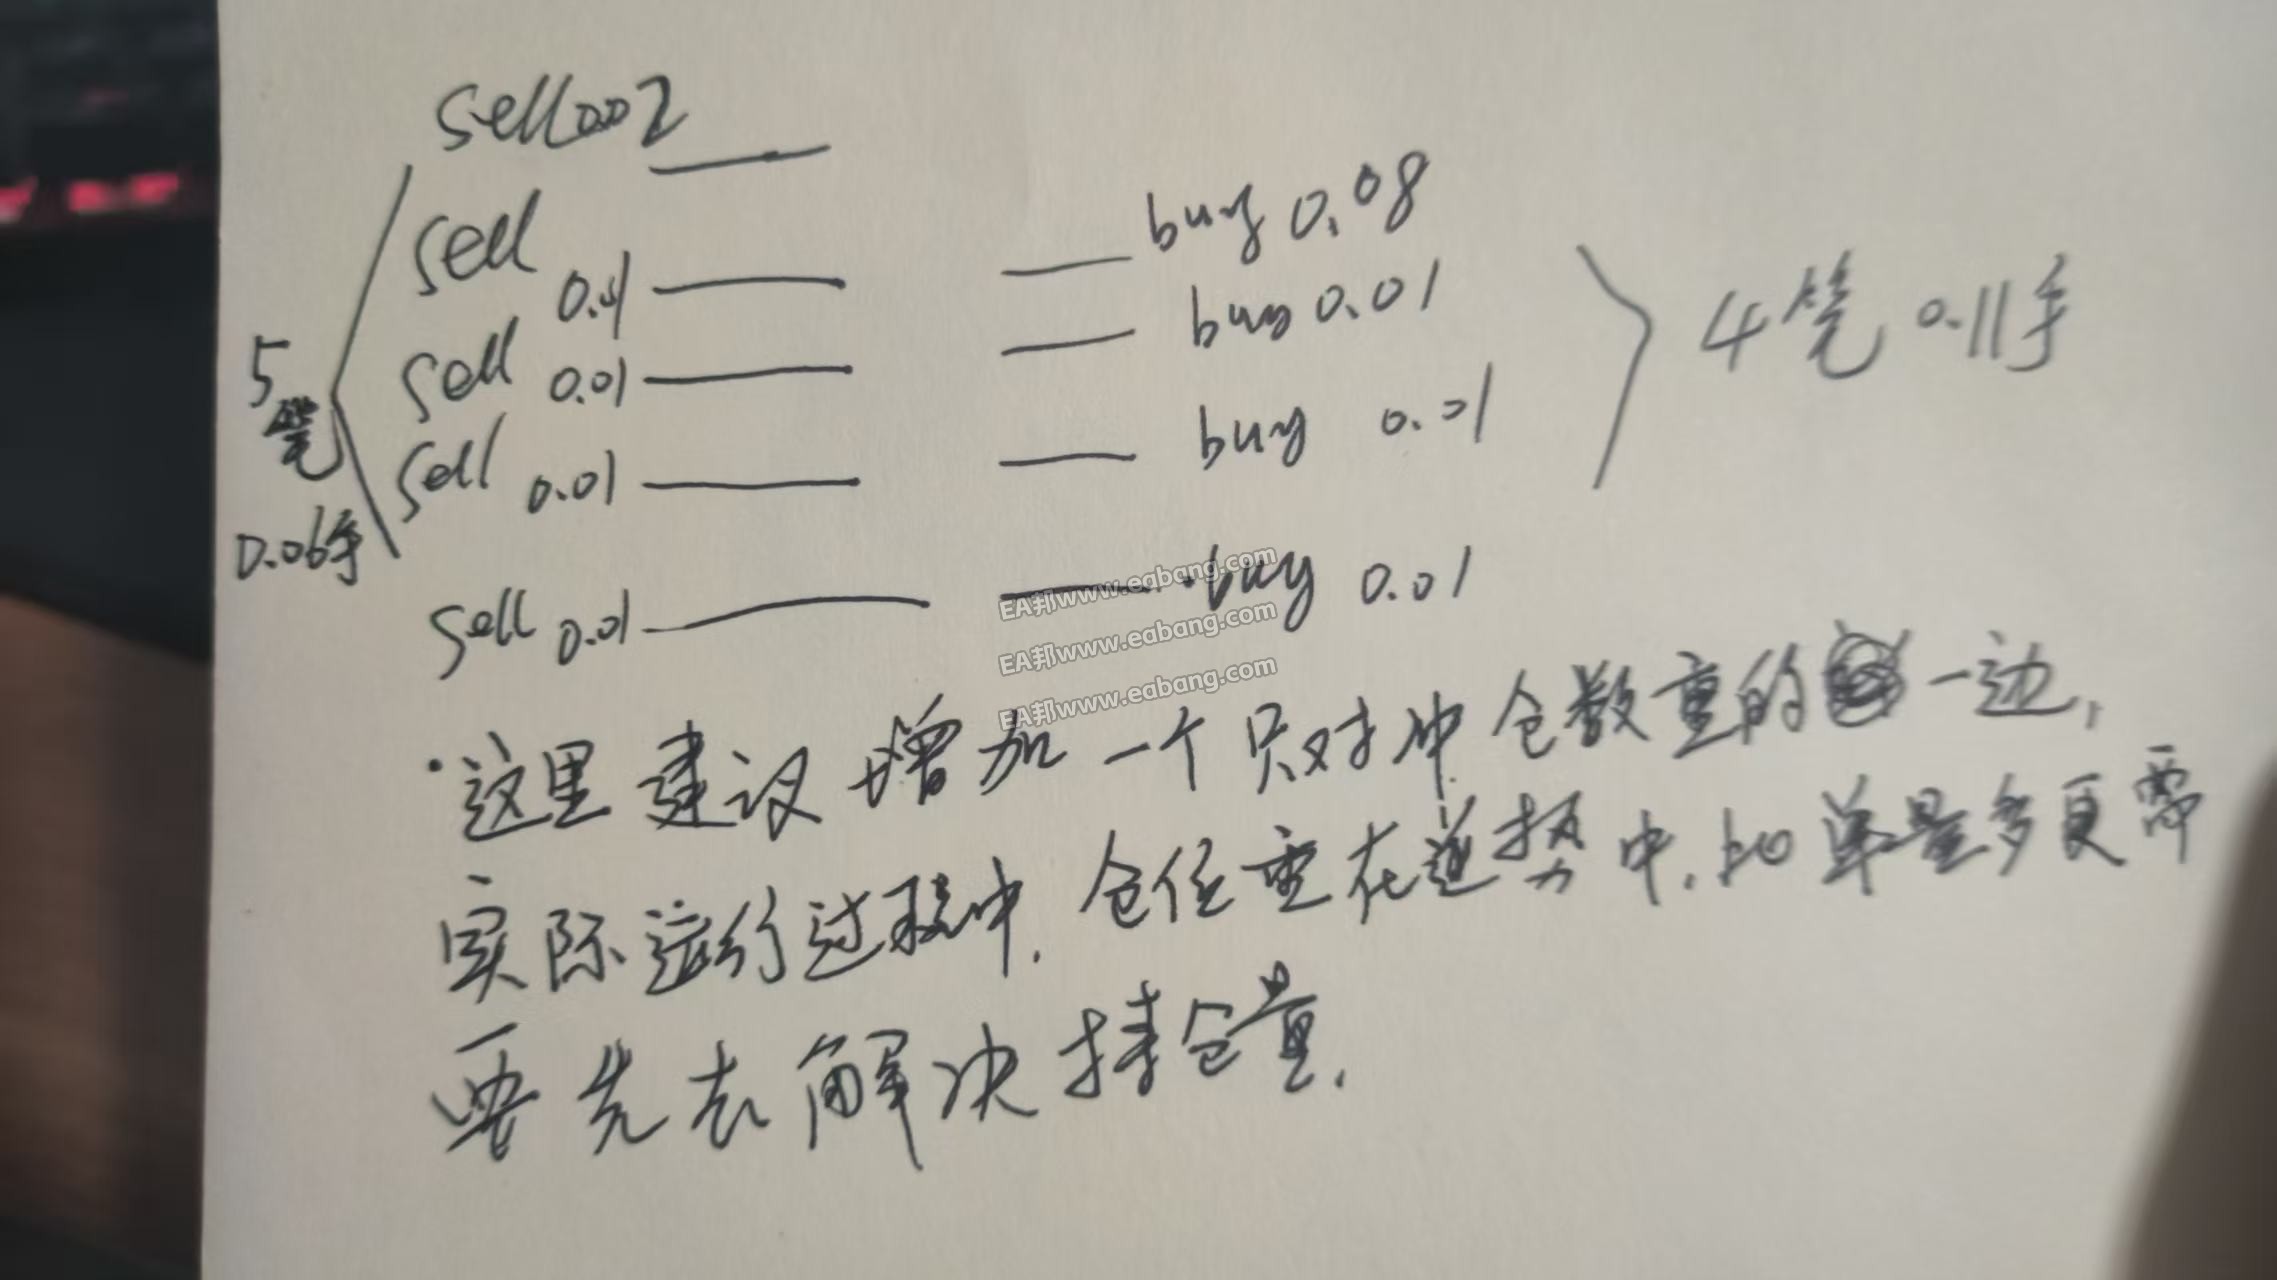 sell 0.02
buy 0.08
sell 0.01
buy 0.01
sell 0.01
5笔
4笔 0.11手
sell 0.01
buy 0.01
0.06手
sell 0.01
buy 0.01
EA邦www.eabang.com
EA邦www.eabang.com
EA邦www.eabang.com
·这里建议增加一个只对冲仓数重的一边,
实际运行过程中,仓位重在逆势中,比单量多更需
要先去解决持仓量.